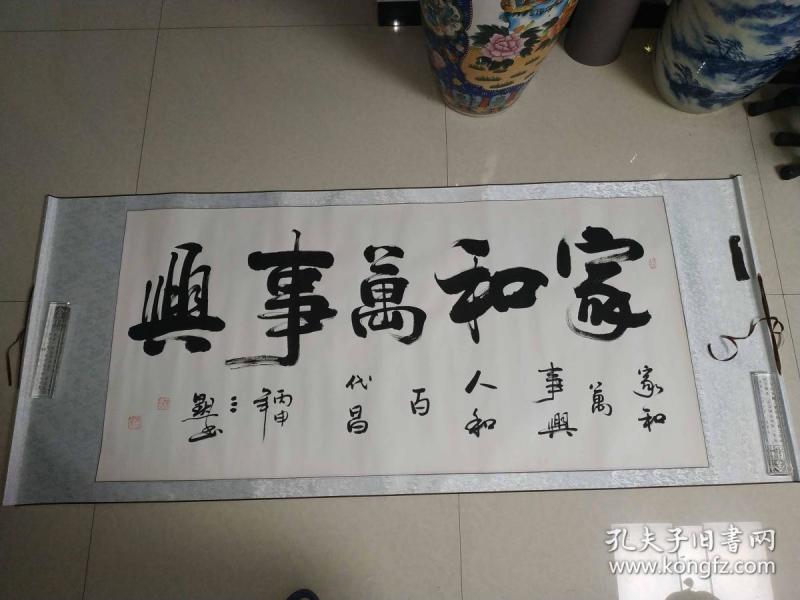 家和萬事興
家和
萬
事興
人和
百
代昌
丙申
年
孔夫子旧書网
www.kongfz.com